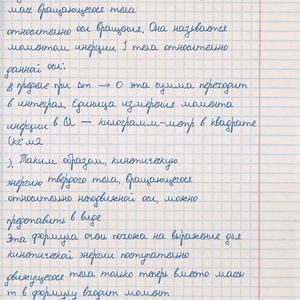 масс вращающегося тела
относительно оси вращения. Она называется
моментом инерции I тела относительно
данной оси:
В пределе при Δm → 0 эта сумма переходит
в интеграл. Единица измерения момента
инерции в СИ — килограмм-метр в квадрате
(кг·м2
). Таким образом, кинетическую
энергию твердого тела, вращающегося
относительно неподвижной оси, можно
представить в виде
Эта формула очень похожа на выражение для
кинетической энергии поступательно
движущегося тела только теперь вместо массы
m в формулу входит момент